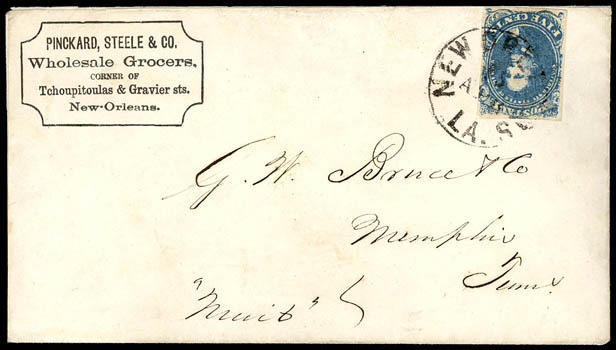 PINCKARD, STEELE & CO.
Wholesale Grocers,
CORNER OF
Tchoupitoulas & Gravier sts.
New-Orleans.
FIVE CENTS
NEW
LA.
G. W. Bruce & Co
Memphis
Tenn.